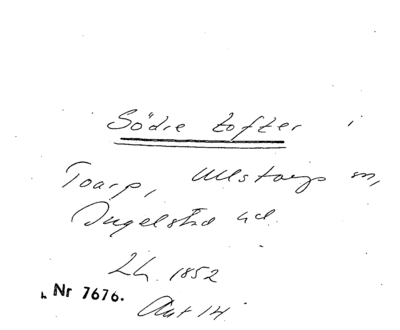 Södre tofter i
Toarp, Ullstorps sn,
Ingelstad hd.
LH. 1852
Nr 7676.
Akt 14